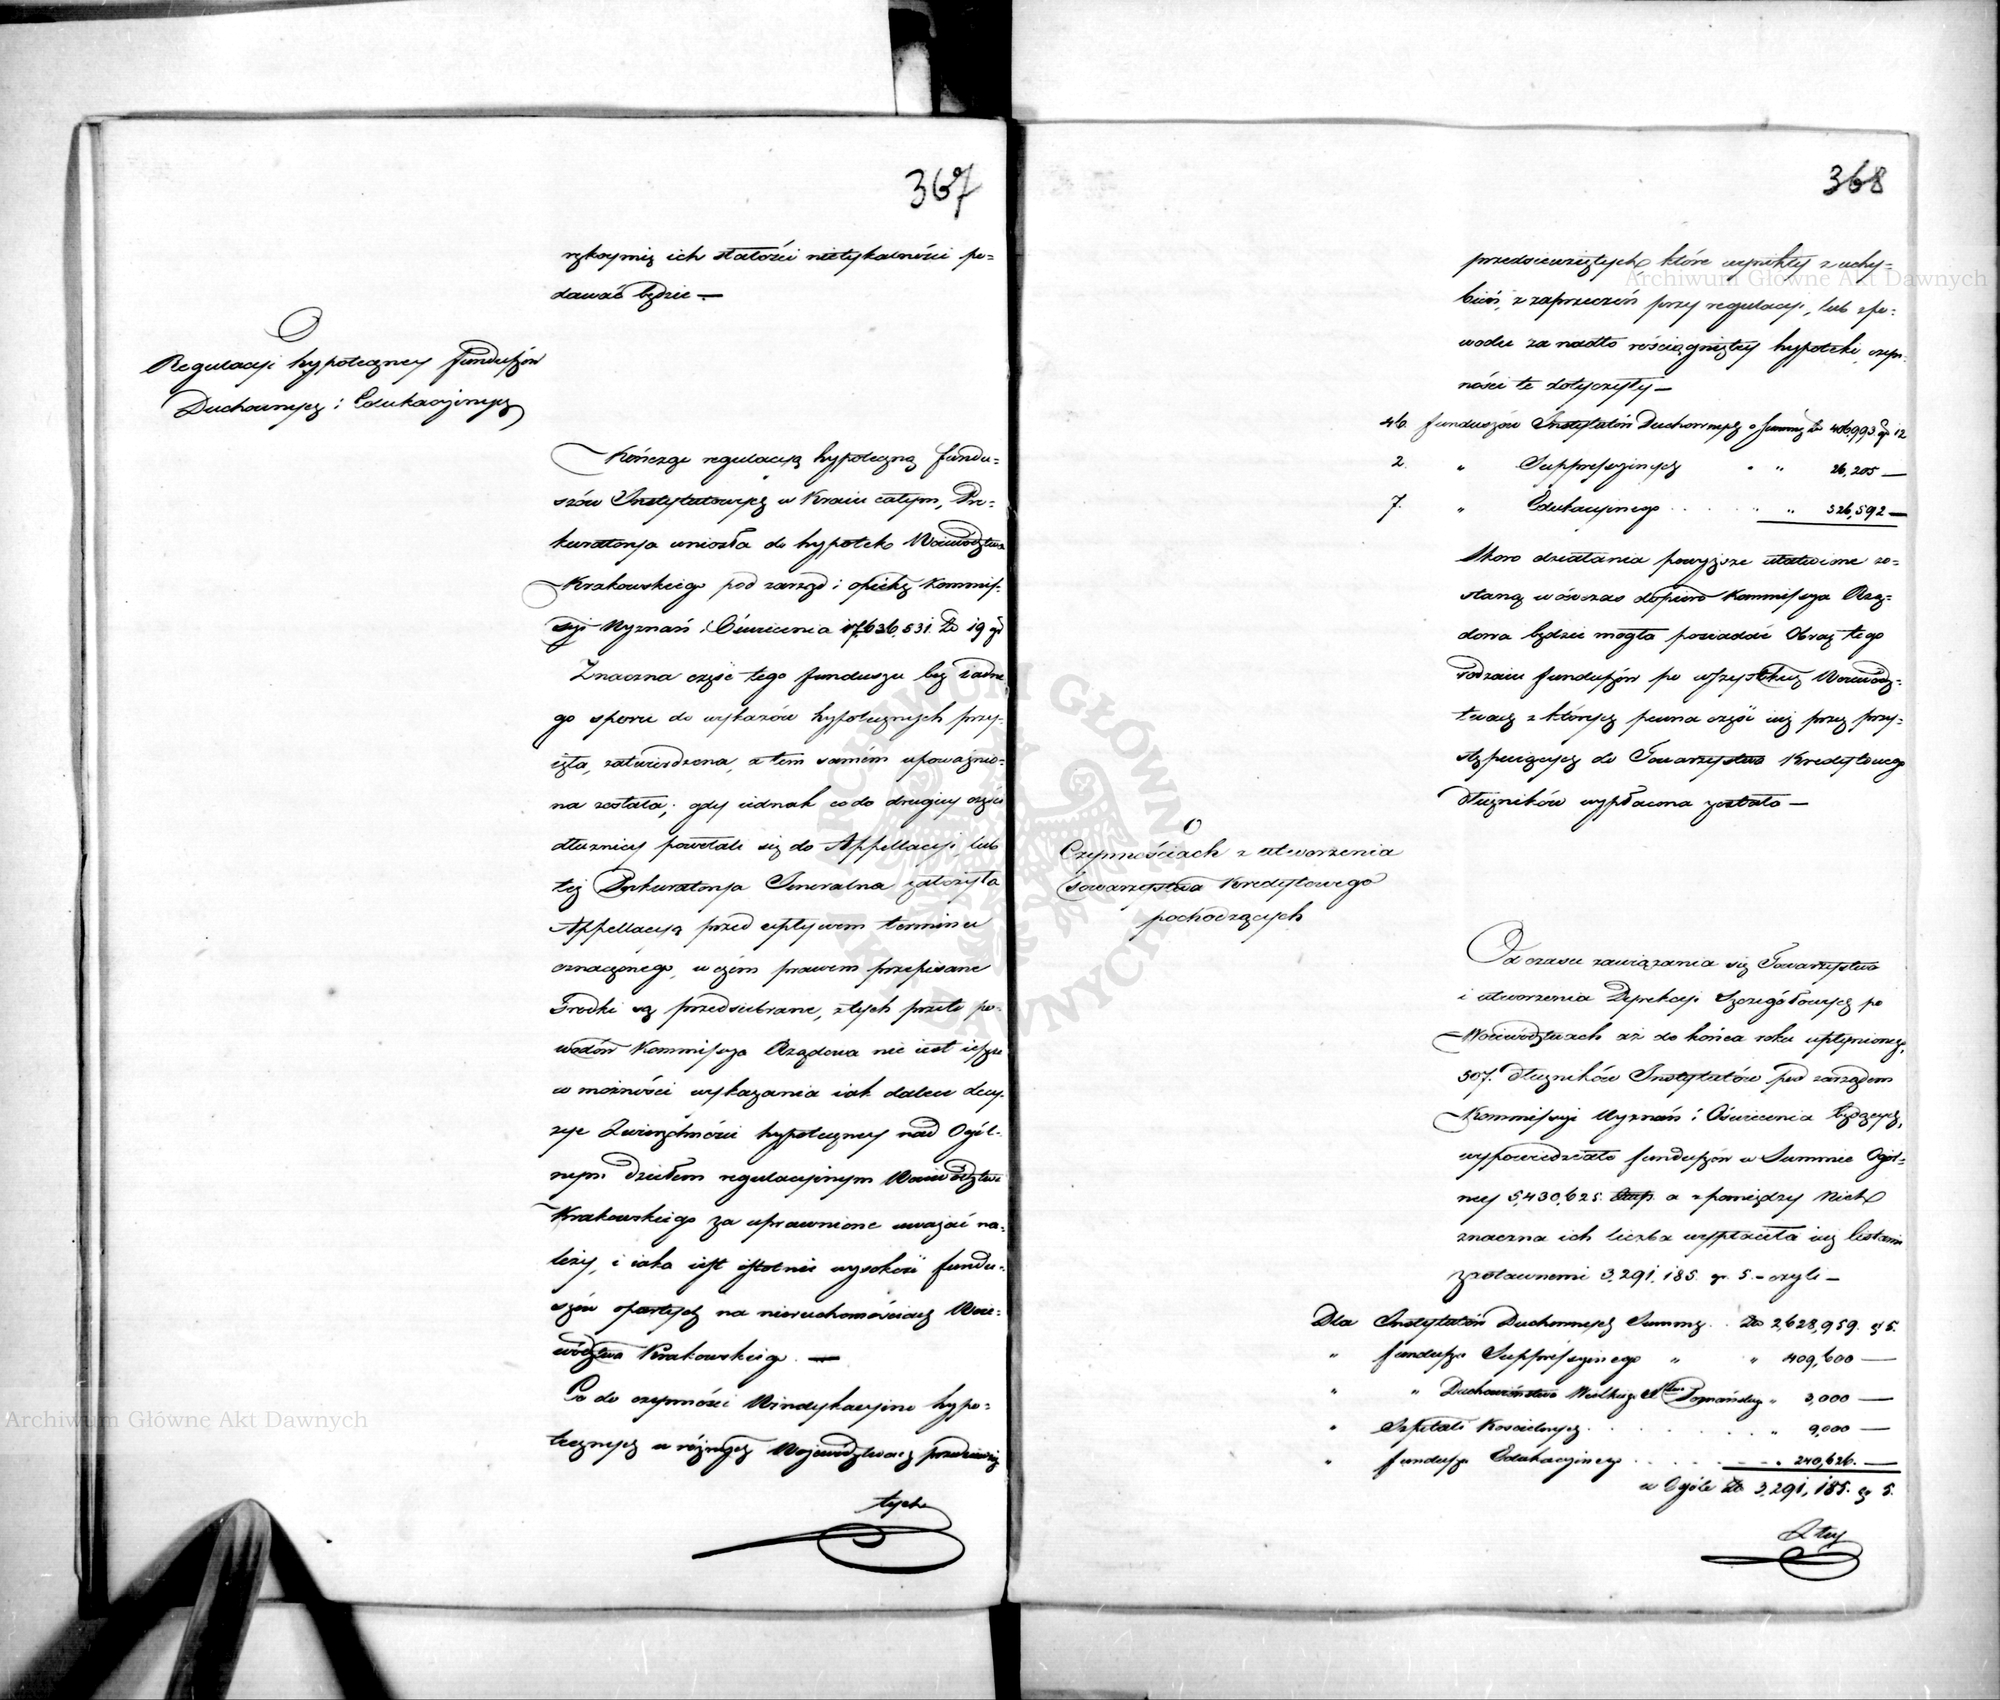 367
rękoymią ich stałości nietykalności po=
dawać będzie —
O
Regulacyi hypoteczney funduszów
Duchownych i Edukacyinych
Kończąc regulacyą hypoteczną fundu=
szów Instytutowych w Kraiu całym, Pro=
kuratorya wniosła do hypotek Województwa
Krakowskiego pod zarząd i opiekę Kommis=
syi Wyznań i Oświecenia 17,636,531. Zł 19 gr
Znaczna część tego funduszu bez żadne
go sporu do wykazów hypotecznych przy=
ięta, zatwierdzona, a tem samém upoważnio=
na została; gdy iednak co do drugiey części
dłużnicy powołali się do Appellacyi, lub
też Prokuratorya Generalna założyła
Appellacyą przed upływem terminu
oznaczonego, w czém prawem przepisane
środki są przedsiebrane, z tych przeto po=
wodów Kommissya Rządowa nie iest ieszcze
w możności wykazania iak dalece decy=
zye Zwierzchności hypoteczney nad Ogól=
nym dziełem regulacyinym Województwa
Krakowskiego za uprawnione uważać na=
leży, i iaka iest istotnie wysokość fundu=
szów opartych na nieruchomościach Woie=
wództwa Krakowskiego. —
Co do czynności Windykacyino hypo=
tecznych w różnych Województwach przedsięwzię
tych
368
przedsięwziętych, które wynikły z uchy=
bień, z zaprzeczeń przy regulacyi, lub z po=
wodu za nadto rościągniętey hypoteki, czyn=
ności te dotyczyły —
46. funduszów Instytutów Duchownych o Summę Zł 406,993. gr 12
2. " Suppressyinych " " 26,205 —
7. " Edukacyinego " " 326,592 —
Skoro działania powyższe ułatwione zo=
staną wówczas dopiero Kommissya Rzą=
dowa będzie mogła posiadać Obraz tego
rodzaiu funduszów po wszystkich Wojewódz=
twach z których pewna część iuż przez przy=
stępuiących do Towarzystwa Kredytowego
dłużników wypłacona została —
O
Czynnościach z utworzenia
Towarzystwa Kredytowego
pochodzących
Od czasu zawiązania się Towarzystwa
i utworzenia Dyrekcyi Szczegółowych po
Województwach aż do końca roku upłynionego,
507. dłużników Instytutów pod zarządem
Kommissyi Wyznań i Oświecenia będących,
wypowiedziało funduszów w Summie Ogól=
ney 5,430,625. a z pomiędzy Nich
znaczna ich liczba wypłaciła iuż listami
zastawnemi 3,291,185. gr. 5. — czyli —
Dla Instytutów Duchownych Summę . . Zł 2,628,959. gr 5.
" funduszu Suppressyinego " " 409,600 —
" " Duchowieństwa Wielkiego Xtwa Poznańskiego " 3,000 —
" Szpitali Kościelnych . . . . . . " 9,000 —
" funduszu Edukacyinego . . . . . . " 240,626. —
w Ogóle Zł 3,291,185. gr 5.
Z tey
Archiwum Główne Akt Dawnych
Archiwum Główne Akt Dawnych
ARCHIWUM GŁÓWNE AKT DAWNYCH